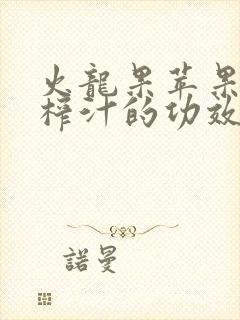 火龍果苹果
榨汁的功效
諾曼